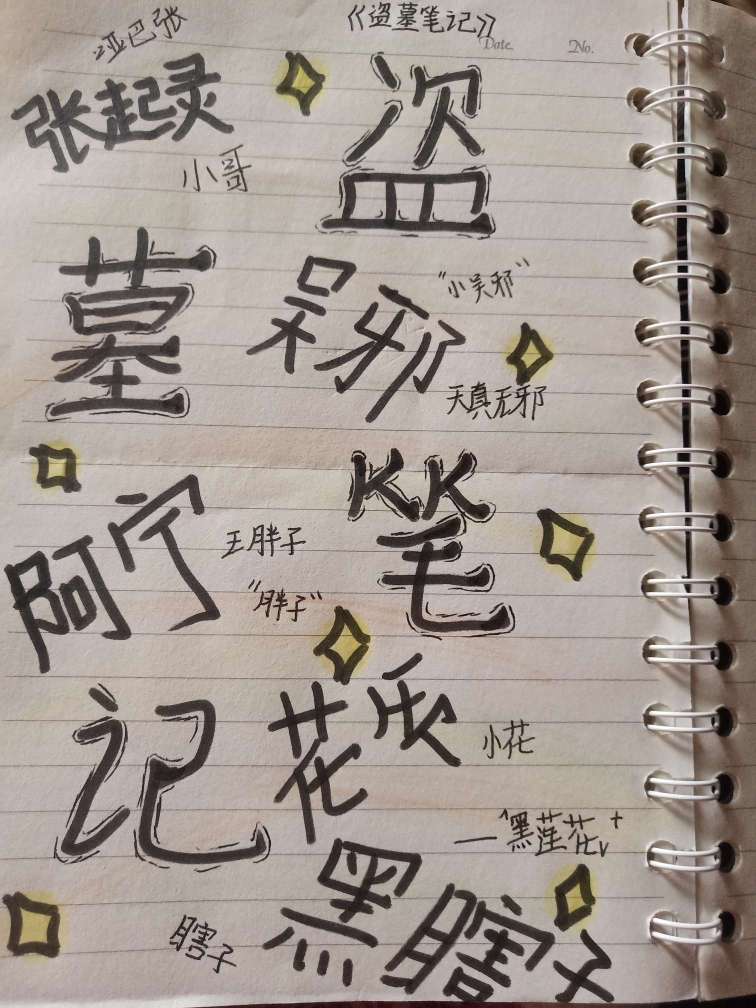 哑巴张
《盗墓笔记》
Date.
No.
张起灵
小哥
盗
墓
吴邪
"小吴邪"
天真无邪
阿宁
王胖子
"胖子"
笔
记
花氏
小花
—"黑莲花"
黑瞎子
瞎子